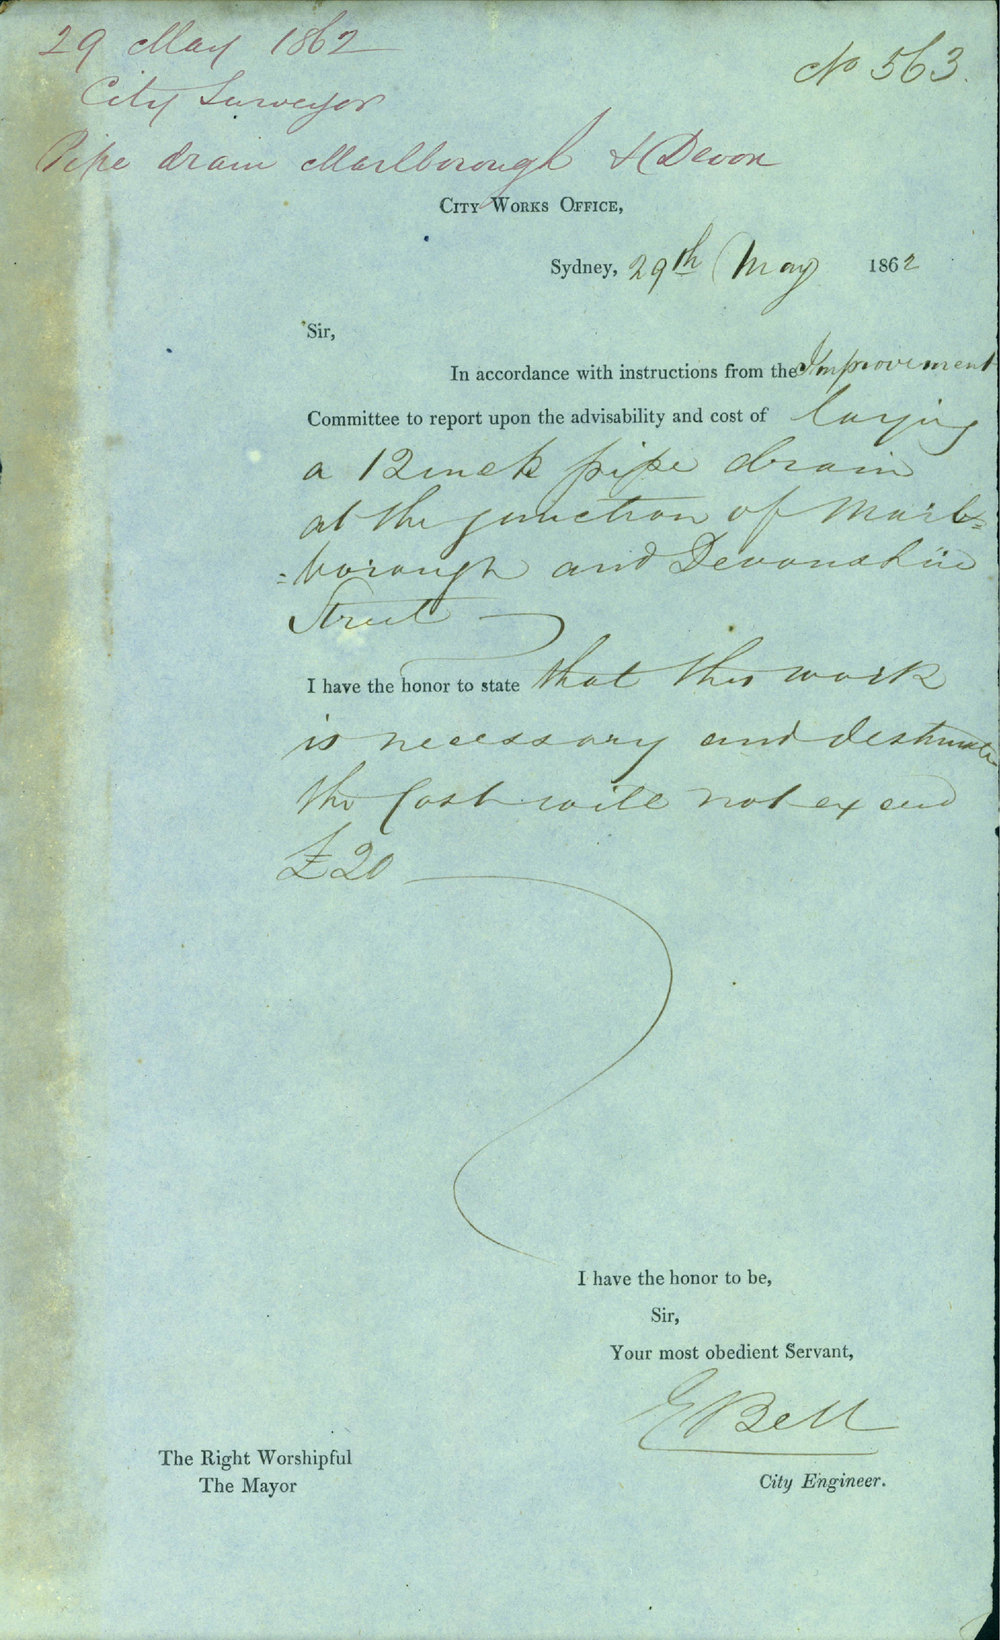 29 May 1862
No 563.
City Surveyor
Pipe drain Marlborough & Devon
City Works Office,
Sydney, 29th May 1862
Sir,
In accordance with instructions from the Improvement
Committee to report upon the advisability and cost of laying
a 12 inch pipe drain
at the junction of Marl=
=borough and Devonshire
Street
I have the honor to state that this work
is necessary and I estimate
the Cost will not exceed
£20
I have the honor to be,
Sir,
Your most obedient Servant,
E Bell
The Right Worshipful
The Mayor
City Engineer.